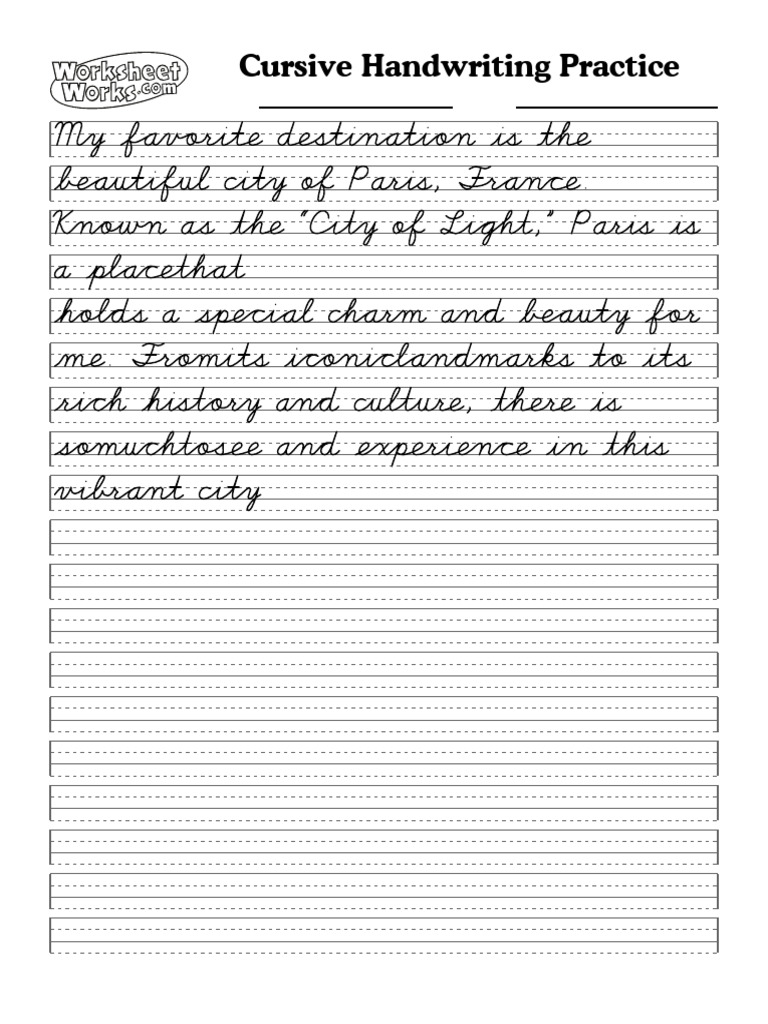 Worksheet
Works.com
Cursive Handwriting Practice
My favorite destination is the
beautiful city of Paris, France.
Known as the "City of Light," Paris is
a placethat
holds a special charm and beauty for
me. Fromits iconiclandmarks to its
rich history and culture, there is
somuchtosee and experience in this
vibrant city